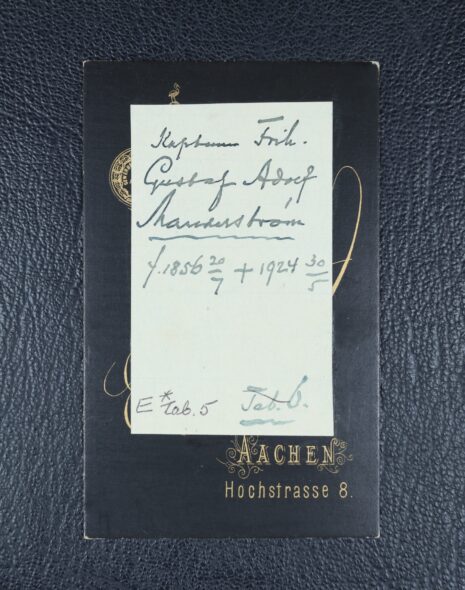 Kaptenen Frih.
Gustaf Adolf
Manderström
f. 1856 20/7 + 1924 30/5
E* tab. 5
Tab. 6.
AACHEN
Hochstrasse 8.